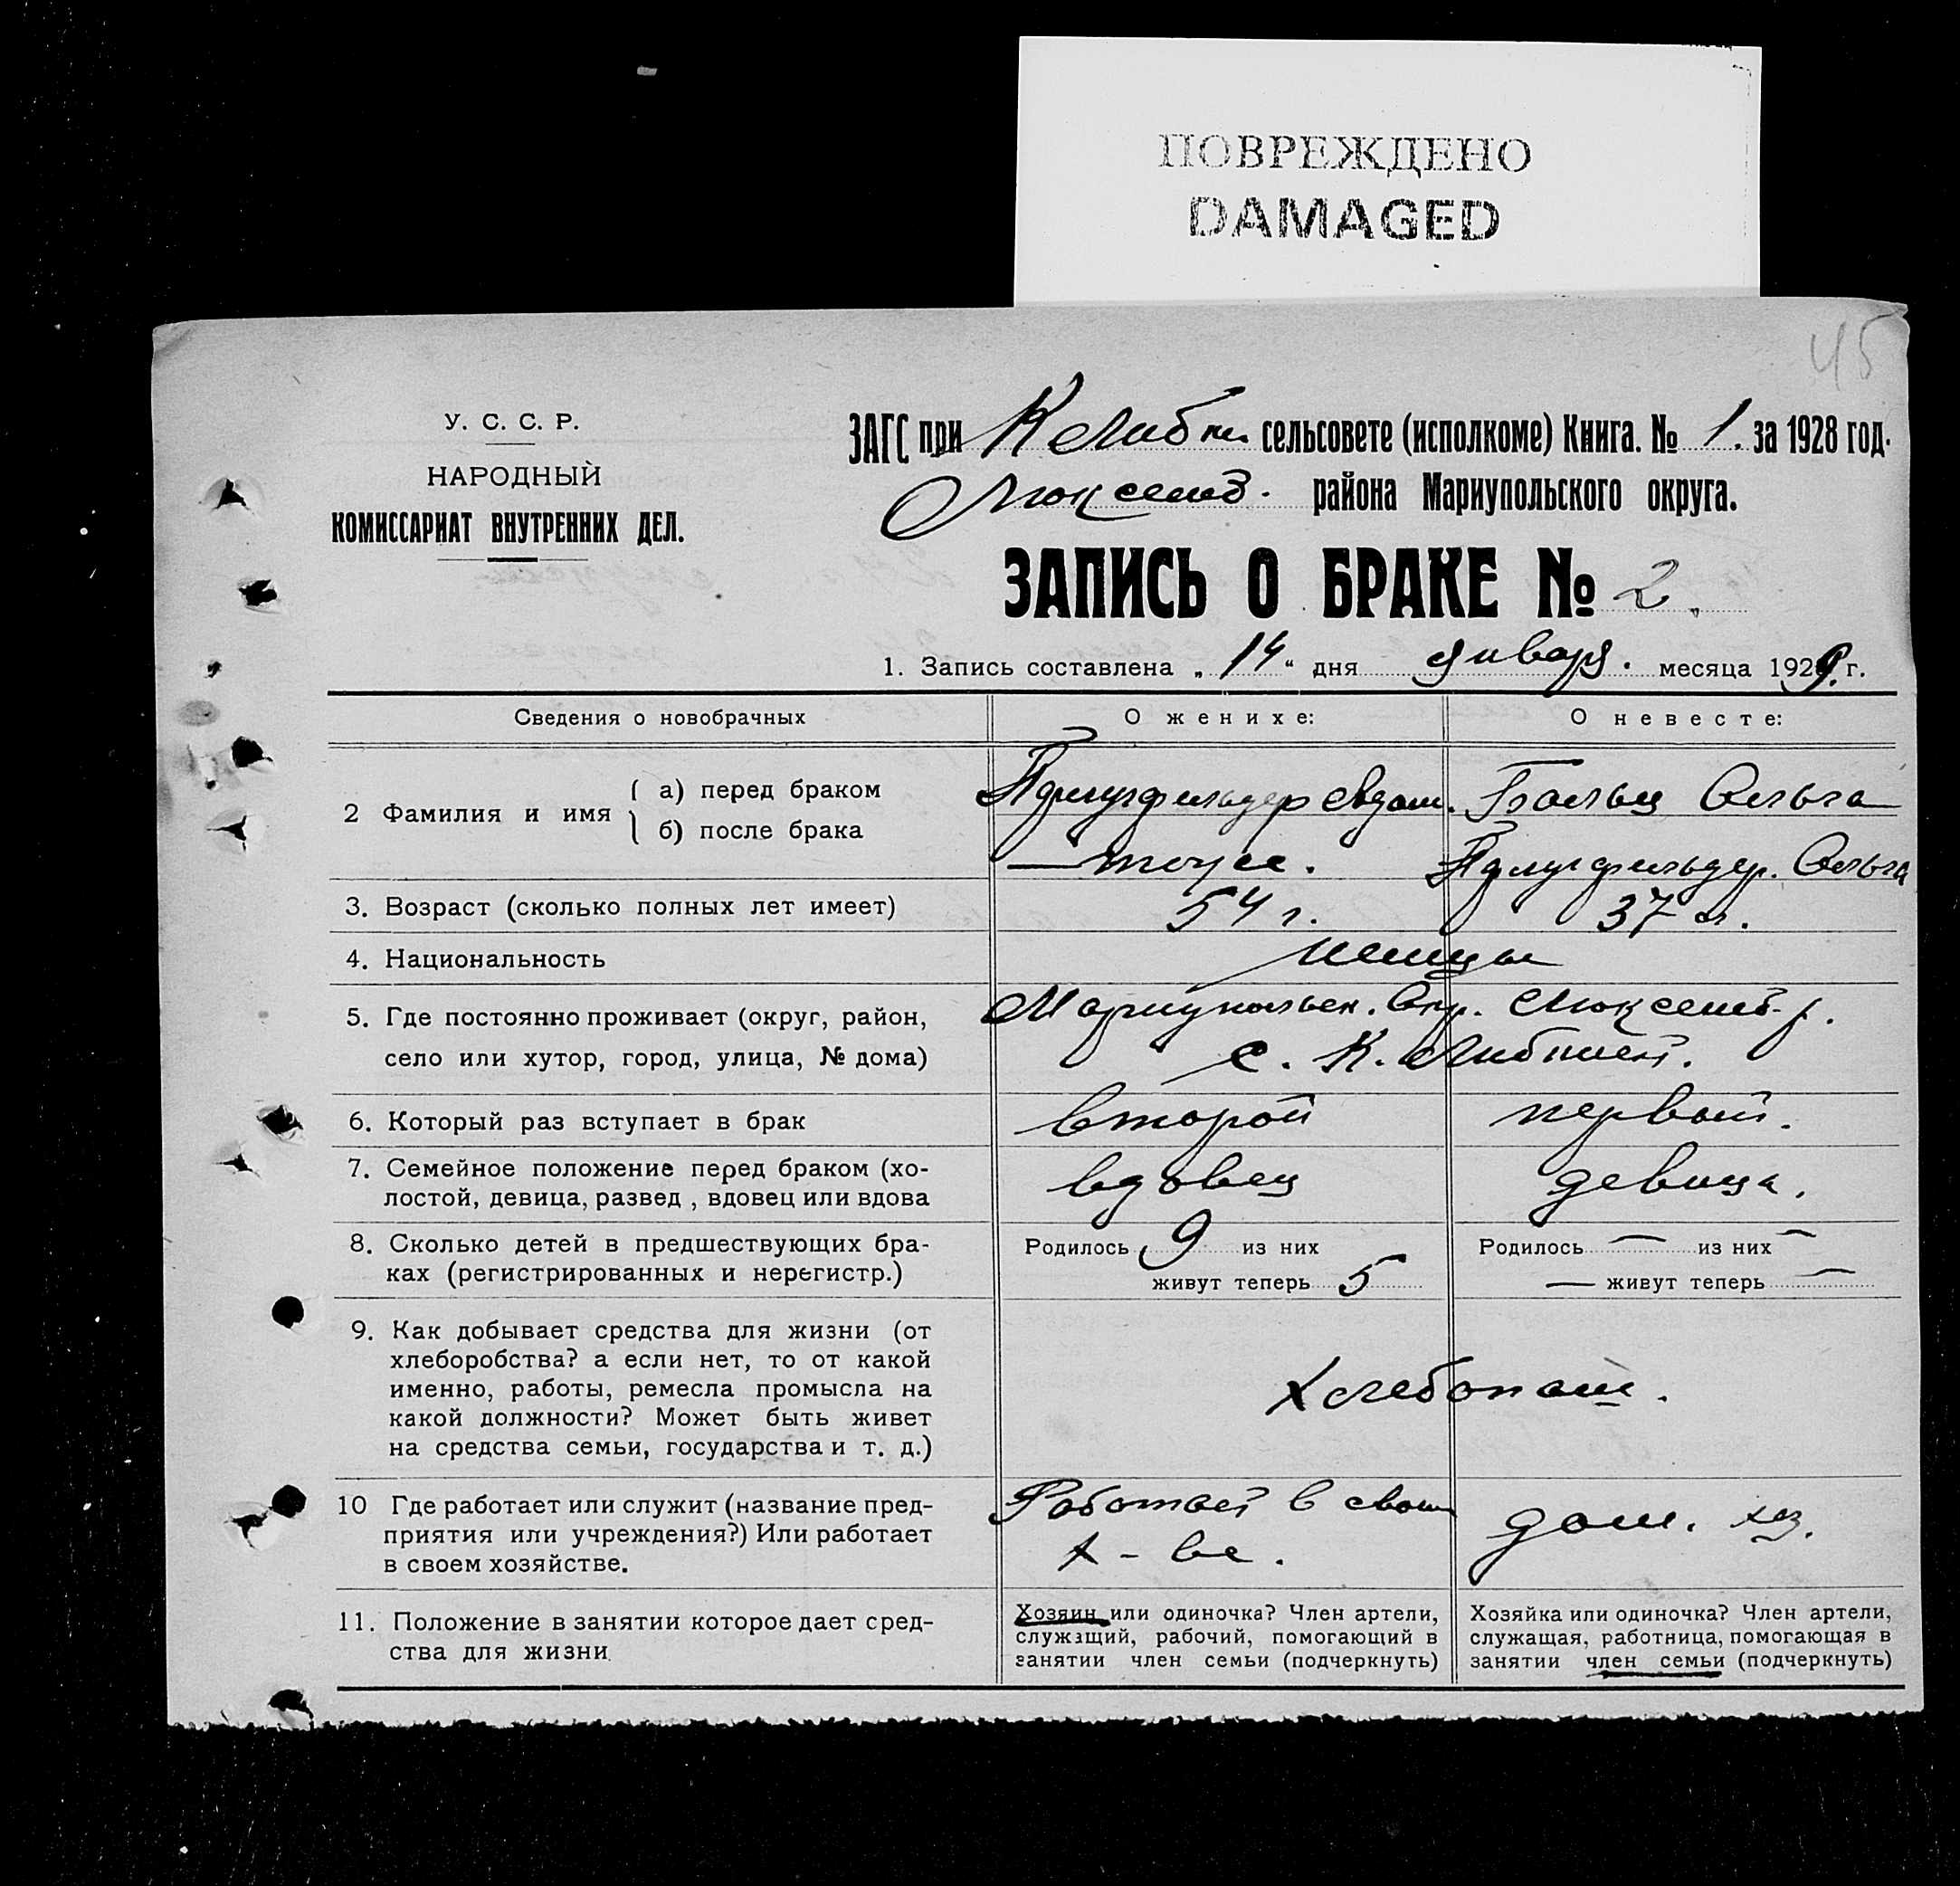 ПОВРЕЖДЕНО
DAMAGED
45
У. С. С. Р.
НАРОДНЫЙ
КОМИССАРИАТ ВНУТРЕННИХ ДЕЛ.
ЗАГС при К Либкн. сельсовете (исполкоме) Книга. № 1. за 1928 год.
Люксемб. района Мариупольского округа.
ЗАПИСЬ О БРАКЕ № 2.
1. Запись составлена „ 14 “ дня января. месяца 1929. г.
Сведения о новобрачных
О женихе:
О невесте:
2 Фамилия и имя
а) перед браком
б) после брака
Адам.
Больц Ольга
— тоже.
Ольга
3. Возраст (сколько полных лет имеет)
54 г.
37 л.
4. Национальность
немцы
5. Где постоянно проживает (округ, район,
село или хутор, город, улица, № дома)
Мариупольск. Окр. Люксемб. р.
с. К. Либкнехт.
6. Который раз вступает в брак
второй
первый.
7. Семейное положение перед браком (хо-
лостой, девица, развед , вдовец или вдова
вдовец
девица.
8. Сколько детей в предшествующих бра-
ках (регистрированных и нерегистр.)
Родилось 9 из них
живут теперь 5
Родилось — из них —
— живут теперь —
9. Как добывает средства для жизни (от
хлеборобства? а если нет, то от какой
именно, работы, ремесла промысла на
какой должности? Может быть живет
на средства семьи, государства и т. д.)
Хлебопаш.
10 Где работает или служит (название пред-
приятия или учреждения?) Или работает
в своем хозяйстве.
Работает в своем
х-ве.
дом. хоз.
11. Положение в занятии которое дает сред-
ства для жизни
Хозяин или одиночка? Член артели,
служащий, рабочий, помогающий в
занятии член семьи (подчеркнуть)
Хозяйка или одиночка? Член артели,
служащая, работница, помогающая в
занятии член семьи (подчеркнуть)